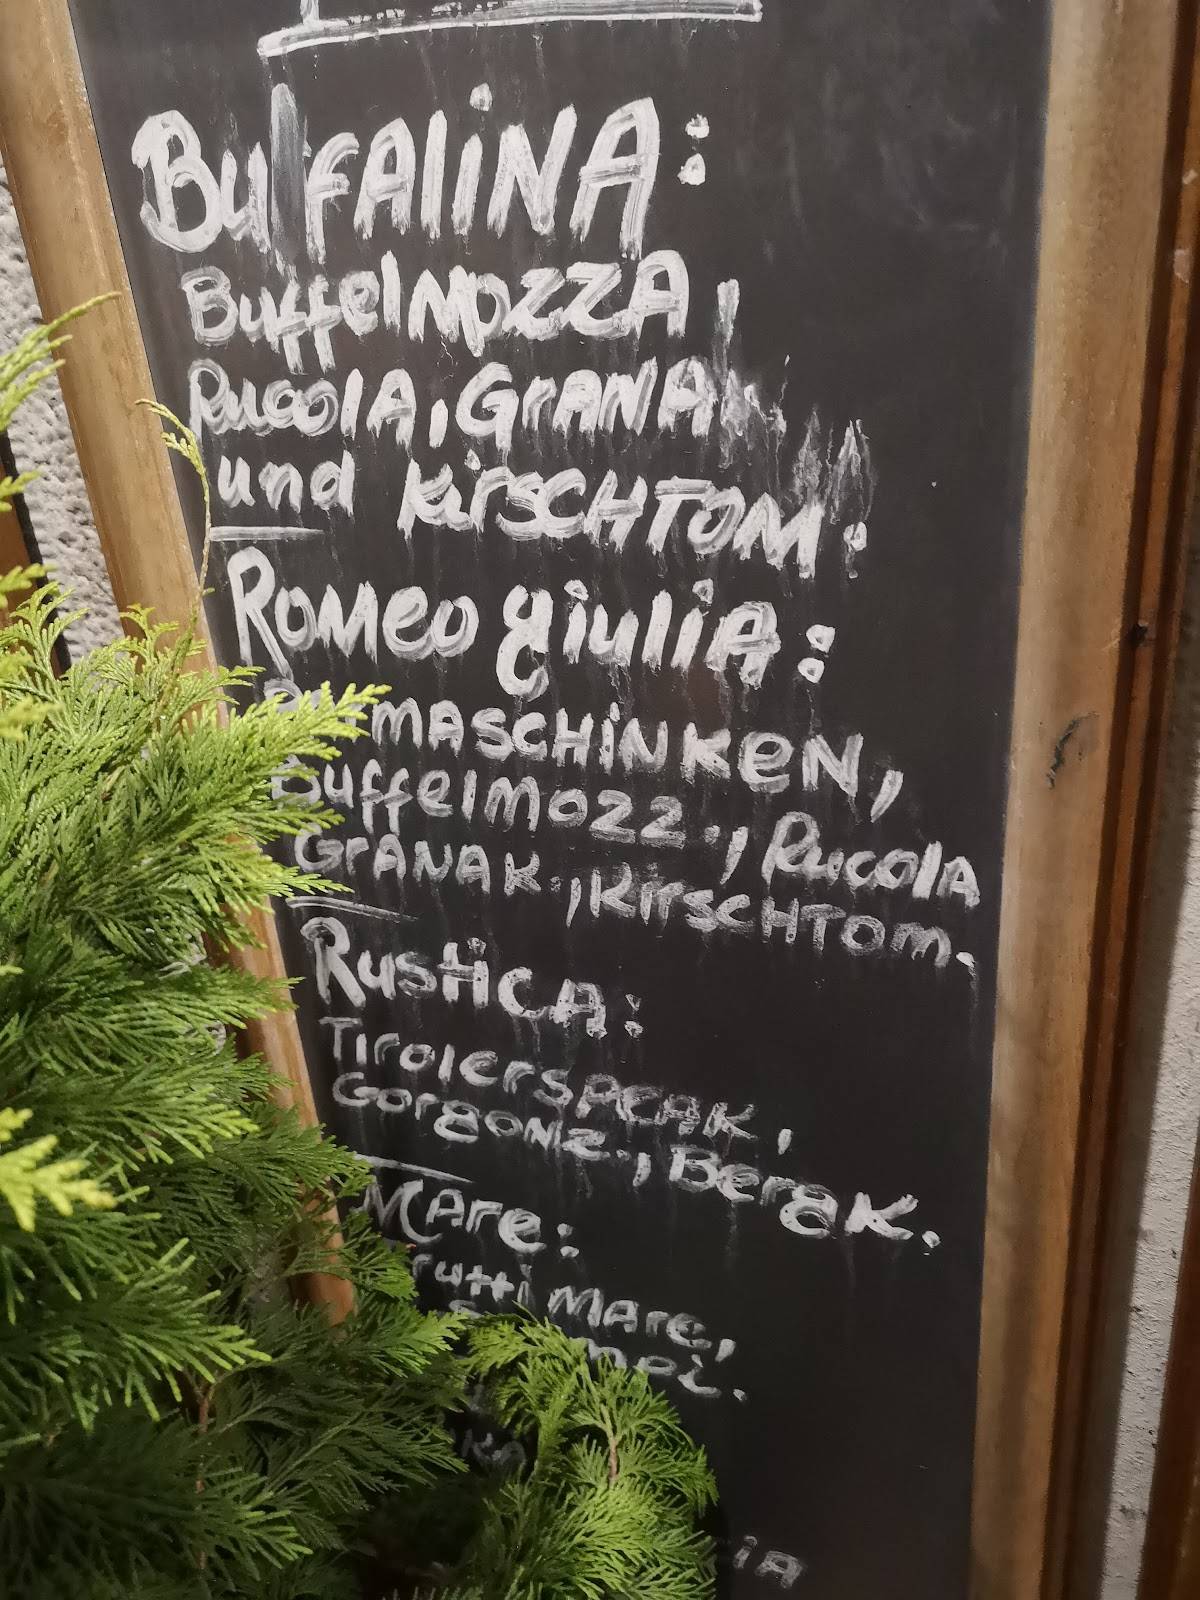 BufALiNA:
BuffelMOZZA,
RucolA, GrANA
und KirSCHTOM.
ROMeo giuliA:
MASCHiNKeN,
BuffelMOZZ., RucolA
GrANAK., KirSCHTOM.
RustiCA:
TirolerSPeAK,
GorgONZ., BergK.
MAre:
frutti MAre,